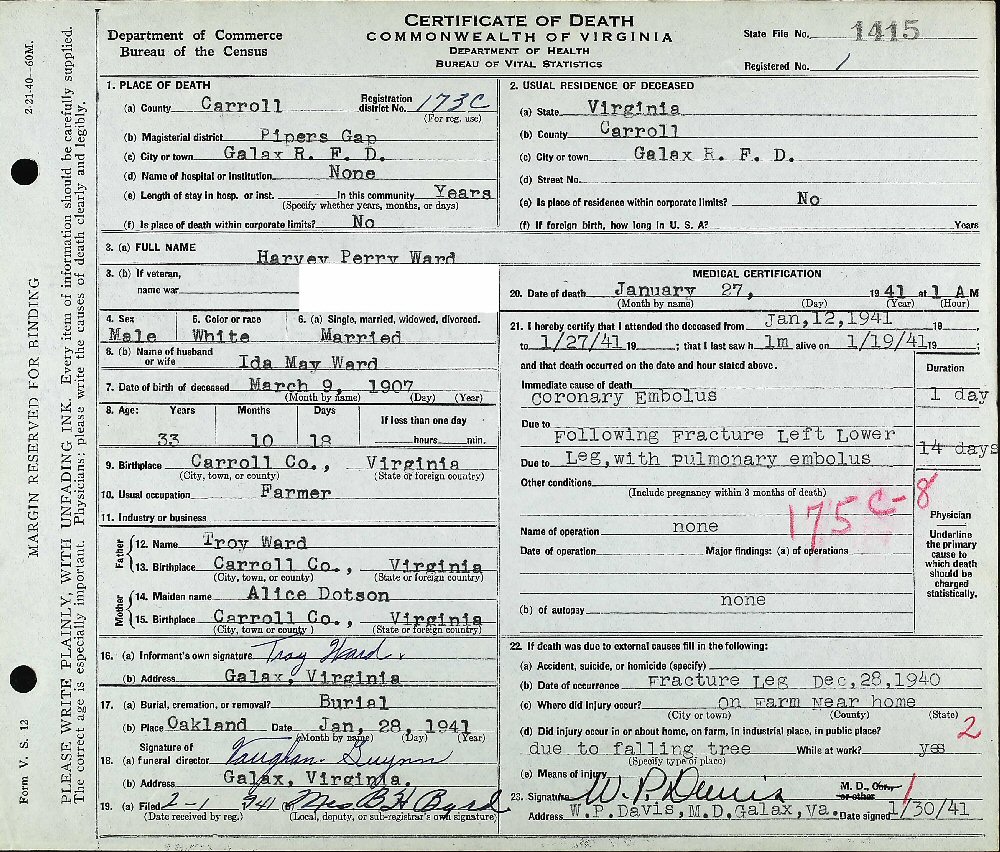 CERTIFICATE OF DEATH
COMMONWEALTH OF VIRGINIA
DEPARTMENT OF HEALTH
BUREAU OF VITAL STATISTICS
Department of Commerce
Bureau of the Census
State File No. 1415
Registered No. 1
2-21-40—60M.
MARGIN RESERVED FOR BINDING
Form V. S. 12
PLEASE WRITE PLAINLY, WITH UNFADING INK. Every item of information should be carefully supplied.
The correct age is especially important. Physicians; please write the causes of death clearly and legibly.
1. PLACE OF DEATH
(a) County Carroll Registration district No. 173C
(For reg. use)
(b) Magisterial district Pipers Gap
(c) City or town Galax R. F. D.
(d) Name of hospital or institution None
(e) Length of stay in hosp. or inst. In this community Years
(Specify whether years, months, or days)
(f) Is place of death within corporate limits? No
2. USUAL RESIDENCE OF DECEASED
(a) State Virginia
(b) County Carroll
(c) City or town Galax R. F. D.
(d) Street No.
(e) Is place of residence within corporate limits? No
(f) If foreign birth, how long in U. S. A? Years
3. (a) FULL NAME
Harvey Perry Ward
3. (b) If veteran,
name war
4. Sex 5. Color or race 6. (a) Single, married, widowed, divorced.
Male White Married
6. (b) Name of husband
or wife Ida May Ward
7. Date of birth of deceased March 9, 1907
(Month by name) (Day) (Year)
8. Age: Years Months Days If less than one day
33 10 18 hours min.
9. Birthplace Carroll Co., Virginia
(City, town, or county) (State or foreign country)
10. Usual occupation Farmer
11. Industry or business
Father
12. Name Troy Ward
13. Birthplace Carroll Co., Virginia
(City, town, or county) (State or foreign country)
Mother
14. Maiden name Alice Dotson
15. Birthplace Carroll Co., Virginia
(City, town or county) (State or foreign country)
16. (a) Informant's own signature Troy Ward.
(b) Address Galax, Virginia
17. (a) Burial, cremation, or removal? Burial
(b) Place Oakland Date Jan, 28, 1941
(Month by name) (Day) (Year)
Signature of
18. (a) funeral director Vaughan. Guynn
(b) Address Galax, Virginia.
19. (a) Filed 2-1 1941 (b) Mrs B H Byrd
(Date received by reg.) (Local, deputy, or sub-registrar's own signature)
MEDICAL CERTIFICATION
20. Date of death January 27, 1941 at 1 A M
(Month by name) (Day) (Year) (Hour)
21. I hereby certify that I attended the deceased from Jan,12,1941 19
to 1/27/41 19 ; that I last saw h im alive on 1/19/41 19 ;
and that death occurred on the date and hour stated above. Duration
Immediate cause of death
Coronary Embolus 1 day
Due to
Following Fracture Left Lower
Due to Leg,with pulmonary embolus 14 days
Other conditions
(Include pregnancy within 3 months of death)
175 C-8
Name of operation none
Date of operation Major findings: (a) of operations
none
(b) of autopsy
Physician
Underline
the primary
cause to
which death
should be
charged
statistically.
22. If death was due to external causes fill in the following:
(a) Accident, suicide, or homicide (specify)
(b) Date of occurrence Fracture Leg Dec,28,1940
(c) Where did injury occur? On Farm Near home
(City or town) (County) (State)
(d) Did injury occur in or about home, on farm, in industrial place, in public place? 2
due to falling tree While at work? yes
(Specify type of place)
(e) Means of injury
23. Signature W. P. Davis M. D., Cor., or other 1
Address W.P.Davis,M.D.Galax,Va. Date signed 1/30/41